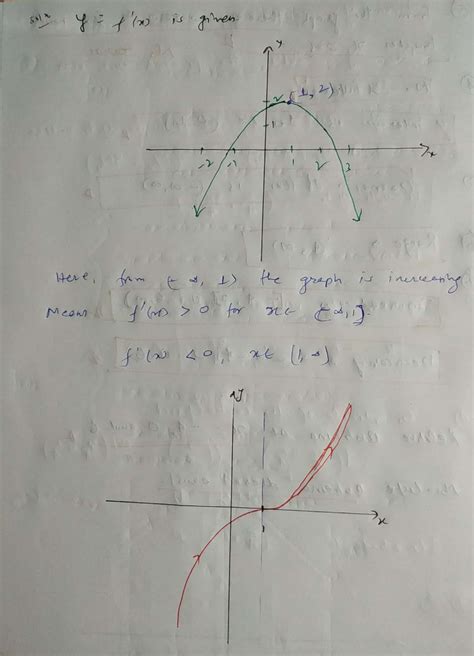 Solⁿ y = f'(x) is given
y
2 (1, 2)
1
-2 -1 1 2 3 x
Here, from (-∞, 1) the graph is increasing
Means f'(x) > 0 for x∈ (-∞,1].
f'(x) < 0, x∈ (1, ∞)
y
1 x